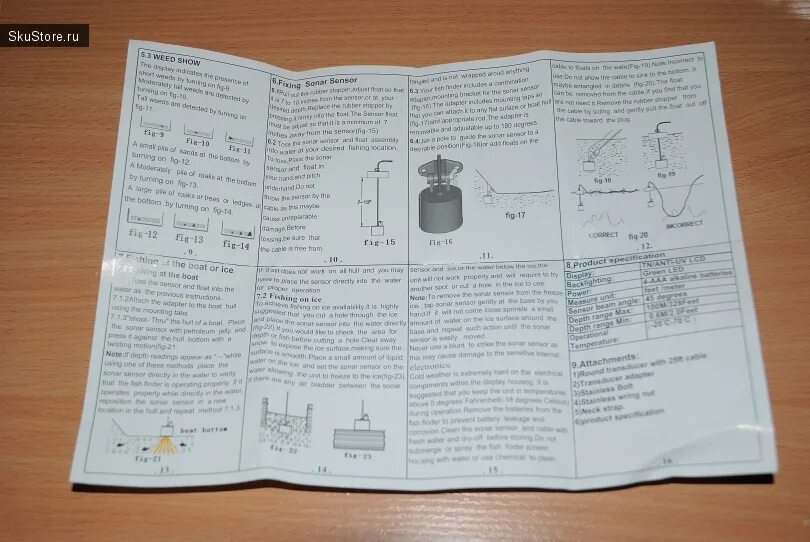 SkuStore.ru
5.3 WEED SHOW
The display indicates the presence of
short weeds by turning on fig-9.
Moderately tall weeds are detected by
turning on fig-10.
Tall weeds are detected by turning on
fig-11.
fig-9 fig-10 fig-11
A small pile of sands at the bottom by
turning on fig-12.
A Moderately pile of roaks at the bottom
by turning on fig-13.
A large pile of roaks or trees or ledges at
the bottom by turning on fig-14.
fig-12 fig-13 fig-14
. 9 .
6.Fixing Sonar Sensor
6.1Pull out the rubber stopper,adjust float so that
it is 7 to 10 inches from the sensor,or at your
desired depth.Replace the rubber stopper by
pressing it firmly into the float.The Sensor float
must be adjust so that it is a minimum of 7
inches away from the sensor(fig-15)
6.2 Toss the sonar sensor and float assembly
into water at your desired fishing location.
To toss,Place the sonar
sensor and float in
your hand,and pitch
underhand.Do not
throw the sensor by the
cable as this maybe
cause unrepairable
damage.Before
tossing,be sure that
the cable is free from
7~10"
fig-15
. 10 .
tangles and is not wrapped aroud anything
6.3 Your fish finder includes a combination
adapter/mounting bracket for the sonar sensor
(fig-16).The adapter includes mounting taps,so
that you can attach it to any flat suface or boat hull
(fig-17)and appropriate rod.The adapter is
removable and adjustable up to 180 degrees
6.4Use a pole to guide the sonar sensor to a
desirable position(Fig-18)or add floats on the
fig-16
fig-17
.11.
cable to floats on the wate(Fig-19).Note Incorrect to
use.Do not allow the cable to sink to the bottom .It
maybe entangled in debris (fig-20).The float
can be removed from the cable.If you find that you
are not need it.Remove the rubber stopper from
the cable by siding, and gently pull the float out off
the cable toward the plug.
fig-18
fig-19
CORRECT fig-20 INCORRECT
. 12 .
fishing at the boat or ice
fishing at the boat
Toss the sensor and float into the
water as the previous instructions.
7.1.2Attach the adapter to the boat hull
using the mounting tabs.
7.1.3"Shoot- Thru" the hull of a boat. Place
the sonar sensor with petroleum jelly, and
press it against the hull bottom with a
twisting motion(fig-21.
Note:If depth readings appear as "---"while
using one of these methods place the
sonar sensor directly in the water to verify
that the fish finder is operating properly. If it
operates properly while directly in the water,
reposition the sonar sensor in a new
location in the hull,and repeat method 7.1.3.
boat bottom
fig-21
. 13 .
It does not work on all hull and you may
have to place the sensor directly into the water
for proper operation.
7.2 Fishing on ice
To achieve fishing on ice availability,It is highly
suggested that you cut a hole through the ice
and place the sonar sensor into the water directly
(fig-22).If you would like to check the area for
depth or fish before cutting a hole.Clear away
snow to expose the ice surface,making sure the
surface is smooth.Place a small amount of liquid
water on the ice and set the sonar sensor on the
water allowing the unit to freeze to the ice(fig-23).
If there are any air bladder between the sonar
fig-22
fig-23
. 14 .
sensor and ice or the water below the ice the
unit will not work properly and will require to try
another spot or cut a hole in the ice to use
Note:To remove the sonar sensor from the freeze
ice , tap sonar sensor gently at the base by you
hand.If it will not come loose,sprinkle a small
amount of water on the ice around the module
base and repeat such action until the sonar
sensor is easily moved
Never use a blunt to strike the sonar sensor as
this may cause damage to the sensitive internal
electronics.
Cold weather is extremely hard on the electrical
components within the display housing . It is
suggested that you keep the unit in temperatures
above 0 degrees Fahrenheit(-18 degrees Celsius)
during operation.Remove the batteries from the
fish finder to prevent battery leakage and
corrosion.Clean the sonar sensor and cable with
fresh water and dry-off before storing.Do not
submerge or spray the fish finder screen
housing with water or use chemical to clean.
. 15 .
8.Product specification
Display: TN/ANTI-UV LCD
Backlighting: Green LED
Power: 4-AAA alkaline batteries
Measure unit: feet /meter
Sensor beam angle: 45 degrees
Depth range Max: 100M/328Feet
Depth range Min: 0.6M/2.0Feet
Operational
Temperature: -20℃-70℃
9.Attachments:
1)Round transducer with 25ft cable
2)Transducer adapter
3)Stainless Bolt
4)Stainless wring nut
5)Neck strap.
6)product specification
. 16 .